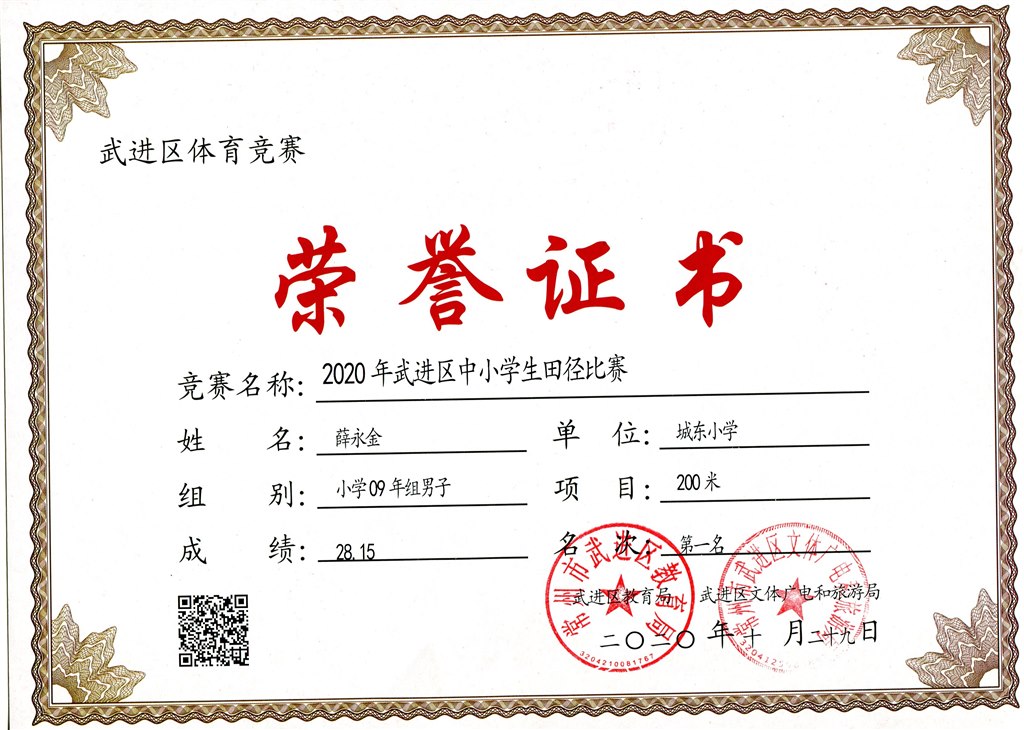 武进区体育竞赛
荣誉证书
竞赛名称: 2020年武进区中小学生田径比赛
姓名: 薛永金 单位: 城东小学
组别: 小学09年组男子 项目: 200米
成绩: 28.15 名次: 第一名
常州市武进区教育局
武进区教育局 武进区文体广电和旅游局
二〇二〇年十月二十九日
3204210081767